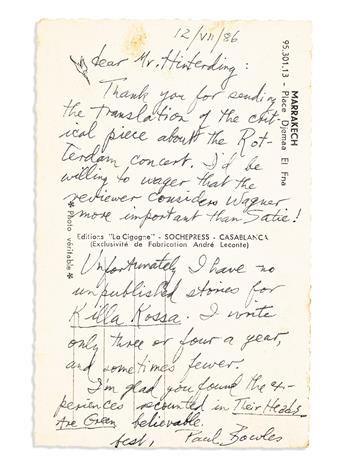 12/VII/86
Dear Mr. Hinterding:
Thank you for sending
the translation of the crit-
ical piece about the Rot-
terdam concert. I'd be
willing to wager that the
reviewer considers Wagner
more important than Satie!
Unfortunately I have no
unpublished stories for
Killa Kossa. I write
only three or four a year,
and sometimes fewer.
I'm glad you found the ex-
periences recounted in Their Heads
Are Green believable.
best, Paul Bowles
Editions "La Cigogne" - SOCHEPRESS - CASABLANCA
(Exclusivité de Fabrication André Leconte)
MARRAKECH
95.301.13 - Place Djemaa El Fna
* Photo véritable *